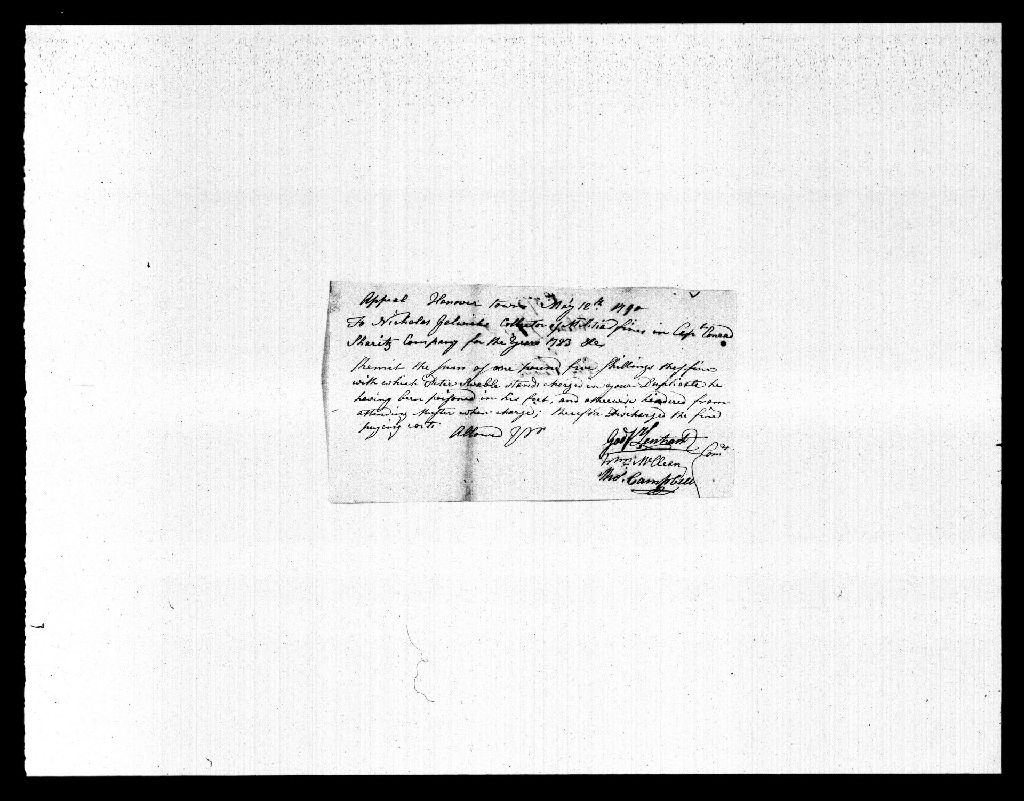 Appeal Hanover town May 12th 1790
To Nicholas Gelwicks Collector of Militia fines in Capt Conrad
Sheritz Company for the Years 1783 &c
Remit the sum of one pound five shillings the fine
with which Peter stands charged in your Duplicate he
having been poisoned in his feet, and otherwise hindered from
attending Muster when charge; therefore Discharged the fine
paying costs
Allowed
Godf Lenhart
Wm McClean
Thos. Campbell
Comrs